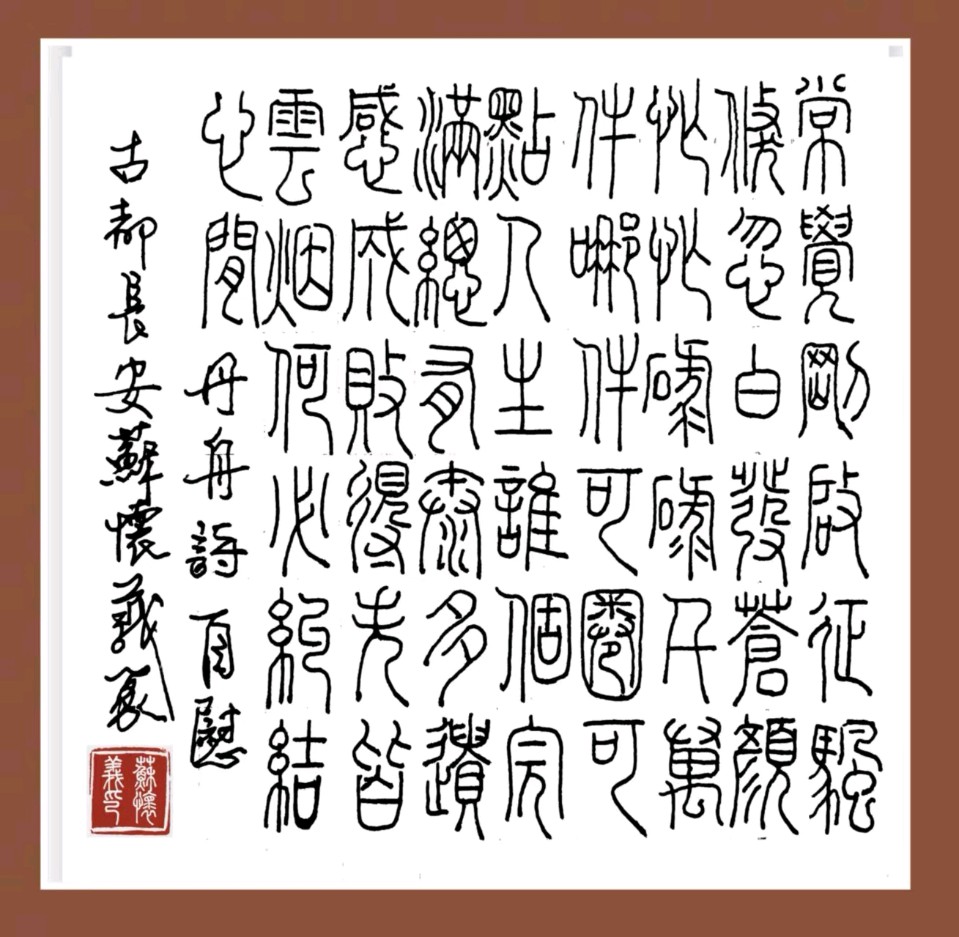 常覺剛啟征颿
倏忽白發蒼顏
忙忙碌碌千萬
件哪件可圈可
點人生誰個完
滿總有泰多遺
感成敗得失皆
雲烟何必糾結
心間 丹舟詩自慰
古都長安蘇懷義篆
蘇懷
義印